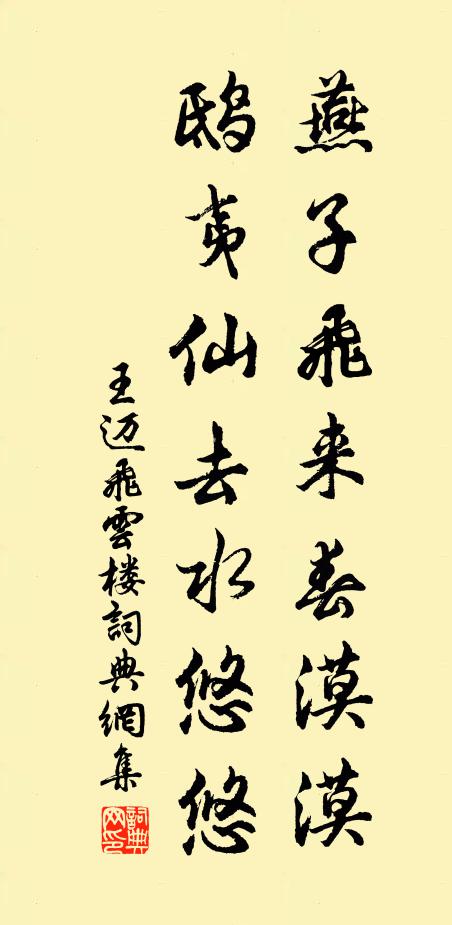 燕子飛来春漠漠
鴟夷仙去水悠悠
王迈飛雲楼詞典網集
詞典网印